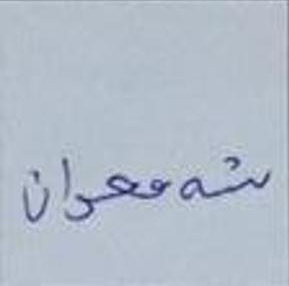 شه معوان